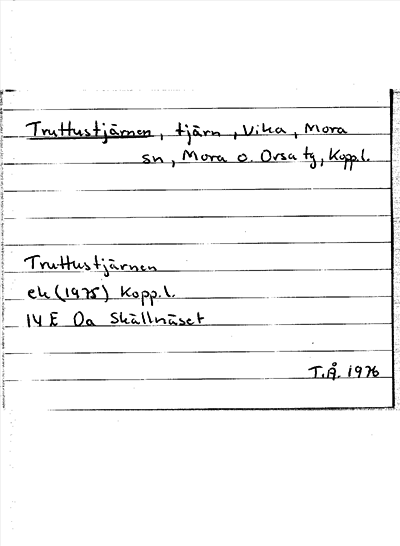 Truttustjärnen, tjärn, Vika, Mora
sn, Mora o. Orsa tg, Kopp.l.
Truttustjärnen
ek (1975) Kopp.l.
14 E 0a Skällnäset
T.Å. 1976